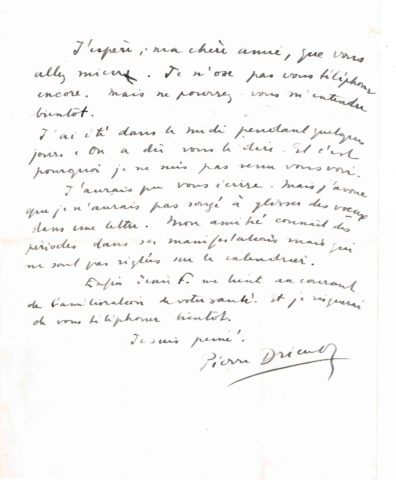 J'espère, ma chère amie, que vous
allez mieux. Je n'ose pas vous téléphoner
encore. Mais ne pourrez-vous m'entendre
bientôt.
J'ai été dans le midi pendant quelques
jours. On a dû vous le dire. Et c'est
pourquoi je ne suis pas venu vous voir.
J'aurais pu vous écrire. Mais j'avoue
que je n'aurais pas songé à glisser des vœux
dans une lettre. Mon amitié connait des
périodes dans ses manifestations mais qui
ne sont pas réglées sur le calendrier.
Enfin Jean F. me tient au courant
de l'amélioration de votre santé. et je
de vous téléphoner bientôt.
Je suis peiné.
Pierre Drieu